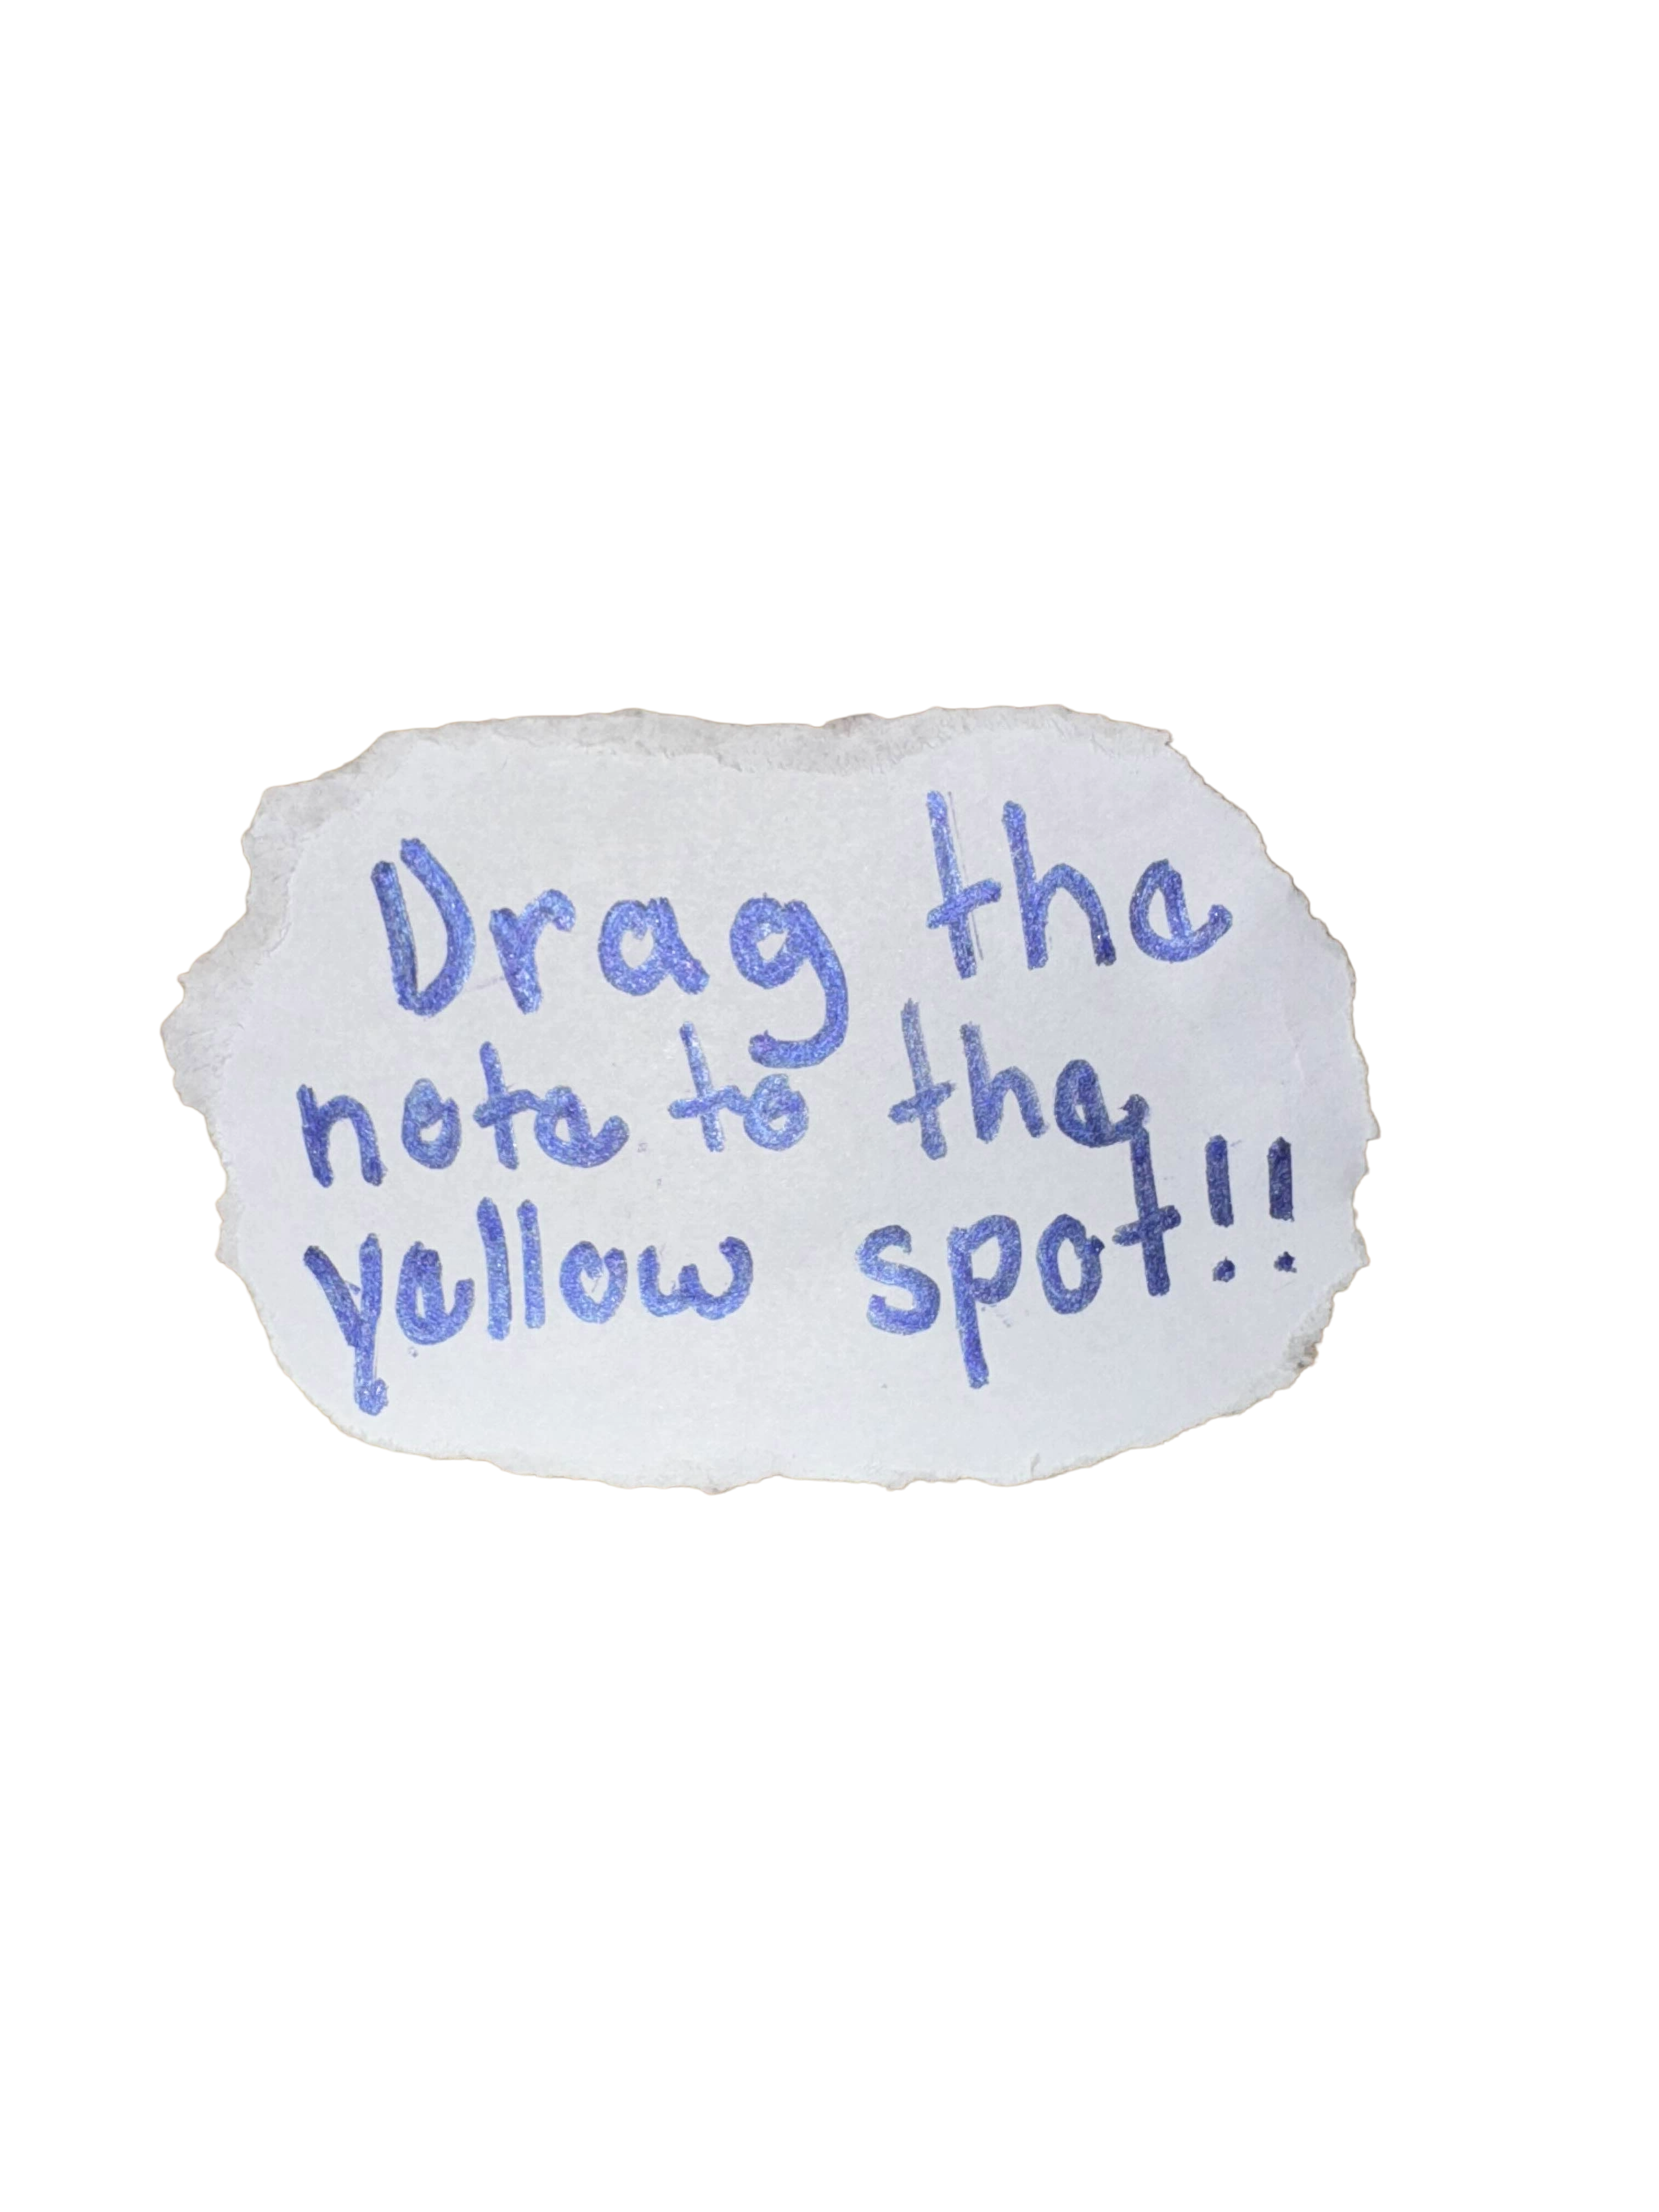 Drag the
note to the
yellow spot!!